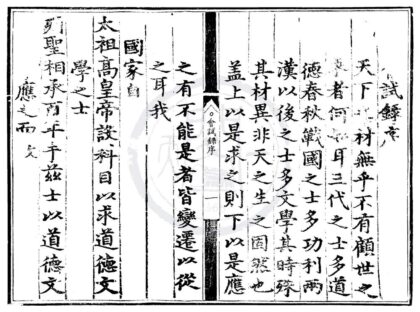 試錄序
天下材無乎不有顧世之
者何耳三代之士多道
德春秋戰國之士多功利兩
漢以後之士多文學其時殊
其材異非天之生之固然也
蓋上以是求之則下以是應
會試錄序
之有不能是者皆變遷以從
之耳我
國家自
太祖高皇帝設科目以求道德文
學之士
列聖相承百年于茲士以道德文
應之而